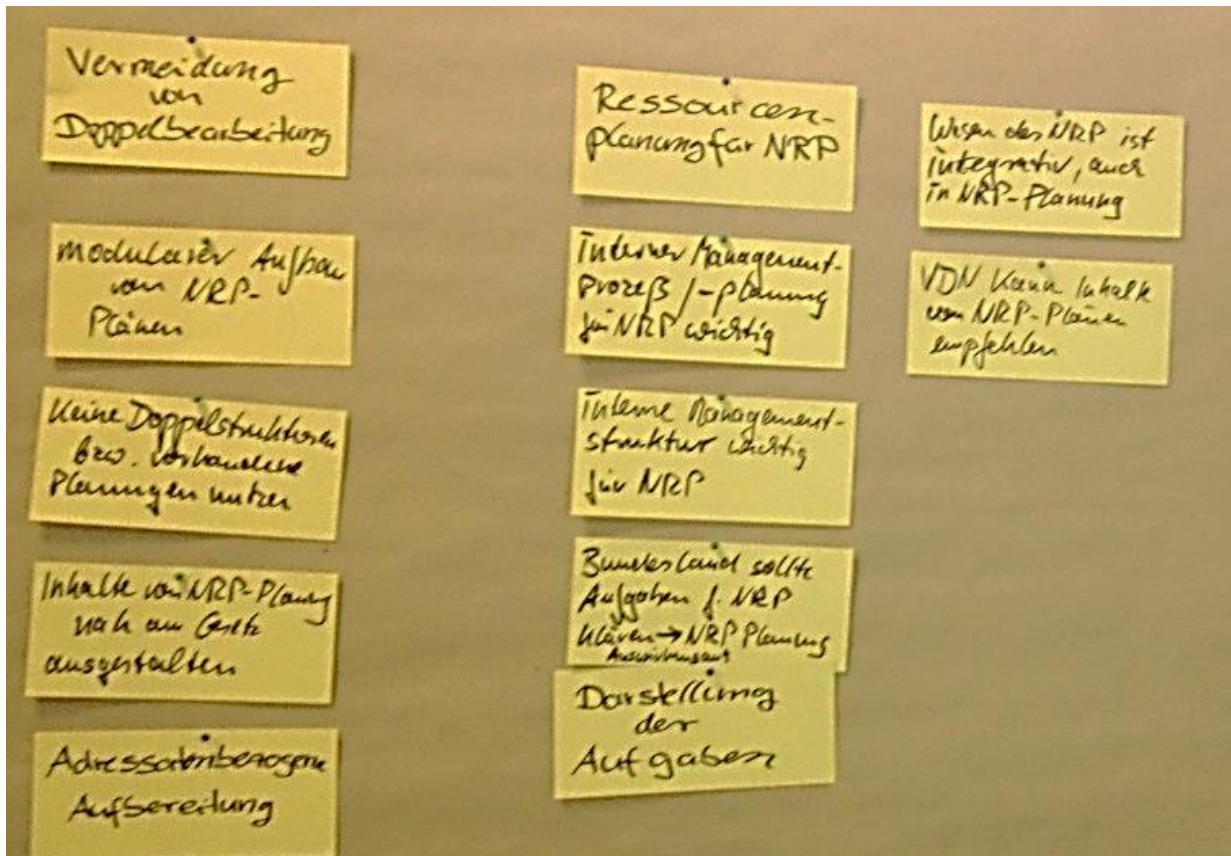 Vermeidung
von
Doppelbearbeitung
modularer Aufbau
von NRP-
Plänen
Keine Doppelstrukturen
bzw. vorhandene
Planungen nutzen
Inhalte von NRP-Planung
nah am Gesetz
ausgestalten
Adressatenbezogene
Aufbereitung
Ressourcen-
planung für NRP
Interner Management-
prozeß /-planung
für NRP wichtig
Interne Management-
struktur wichtig
für NRP
Bundesland sollte
Aufgaben f. NRP
klären → NRP Planung
Auswirkung auf
Darstellung
der
Aufgaben
Wesen des NRP ist
integrativ, auch
in NRP-Planung
VDN kann Inhalte
von NRP-Plänen
empfehlen